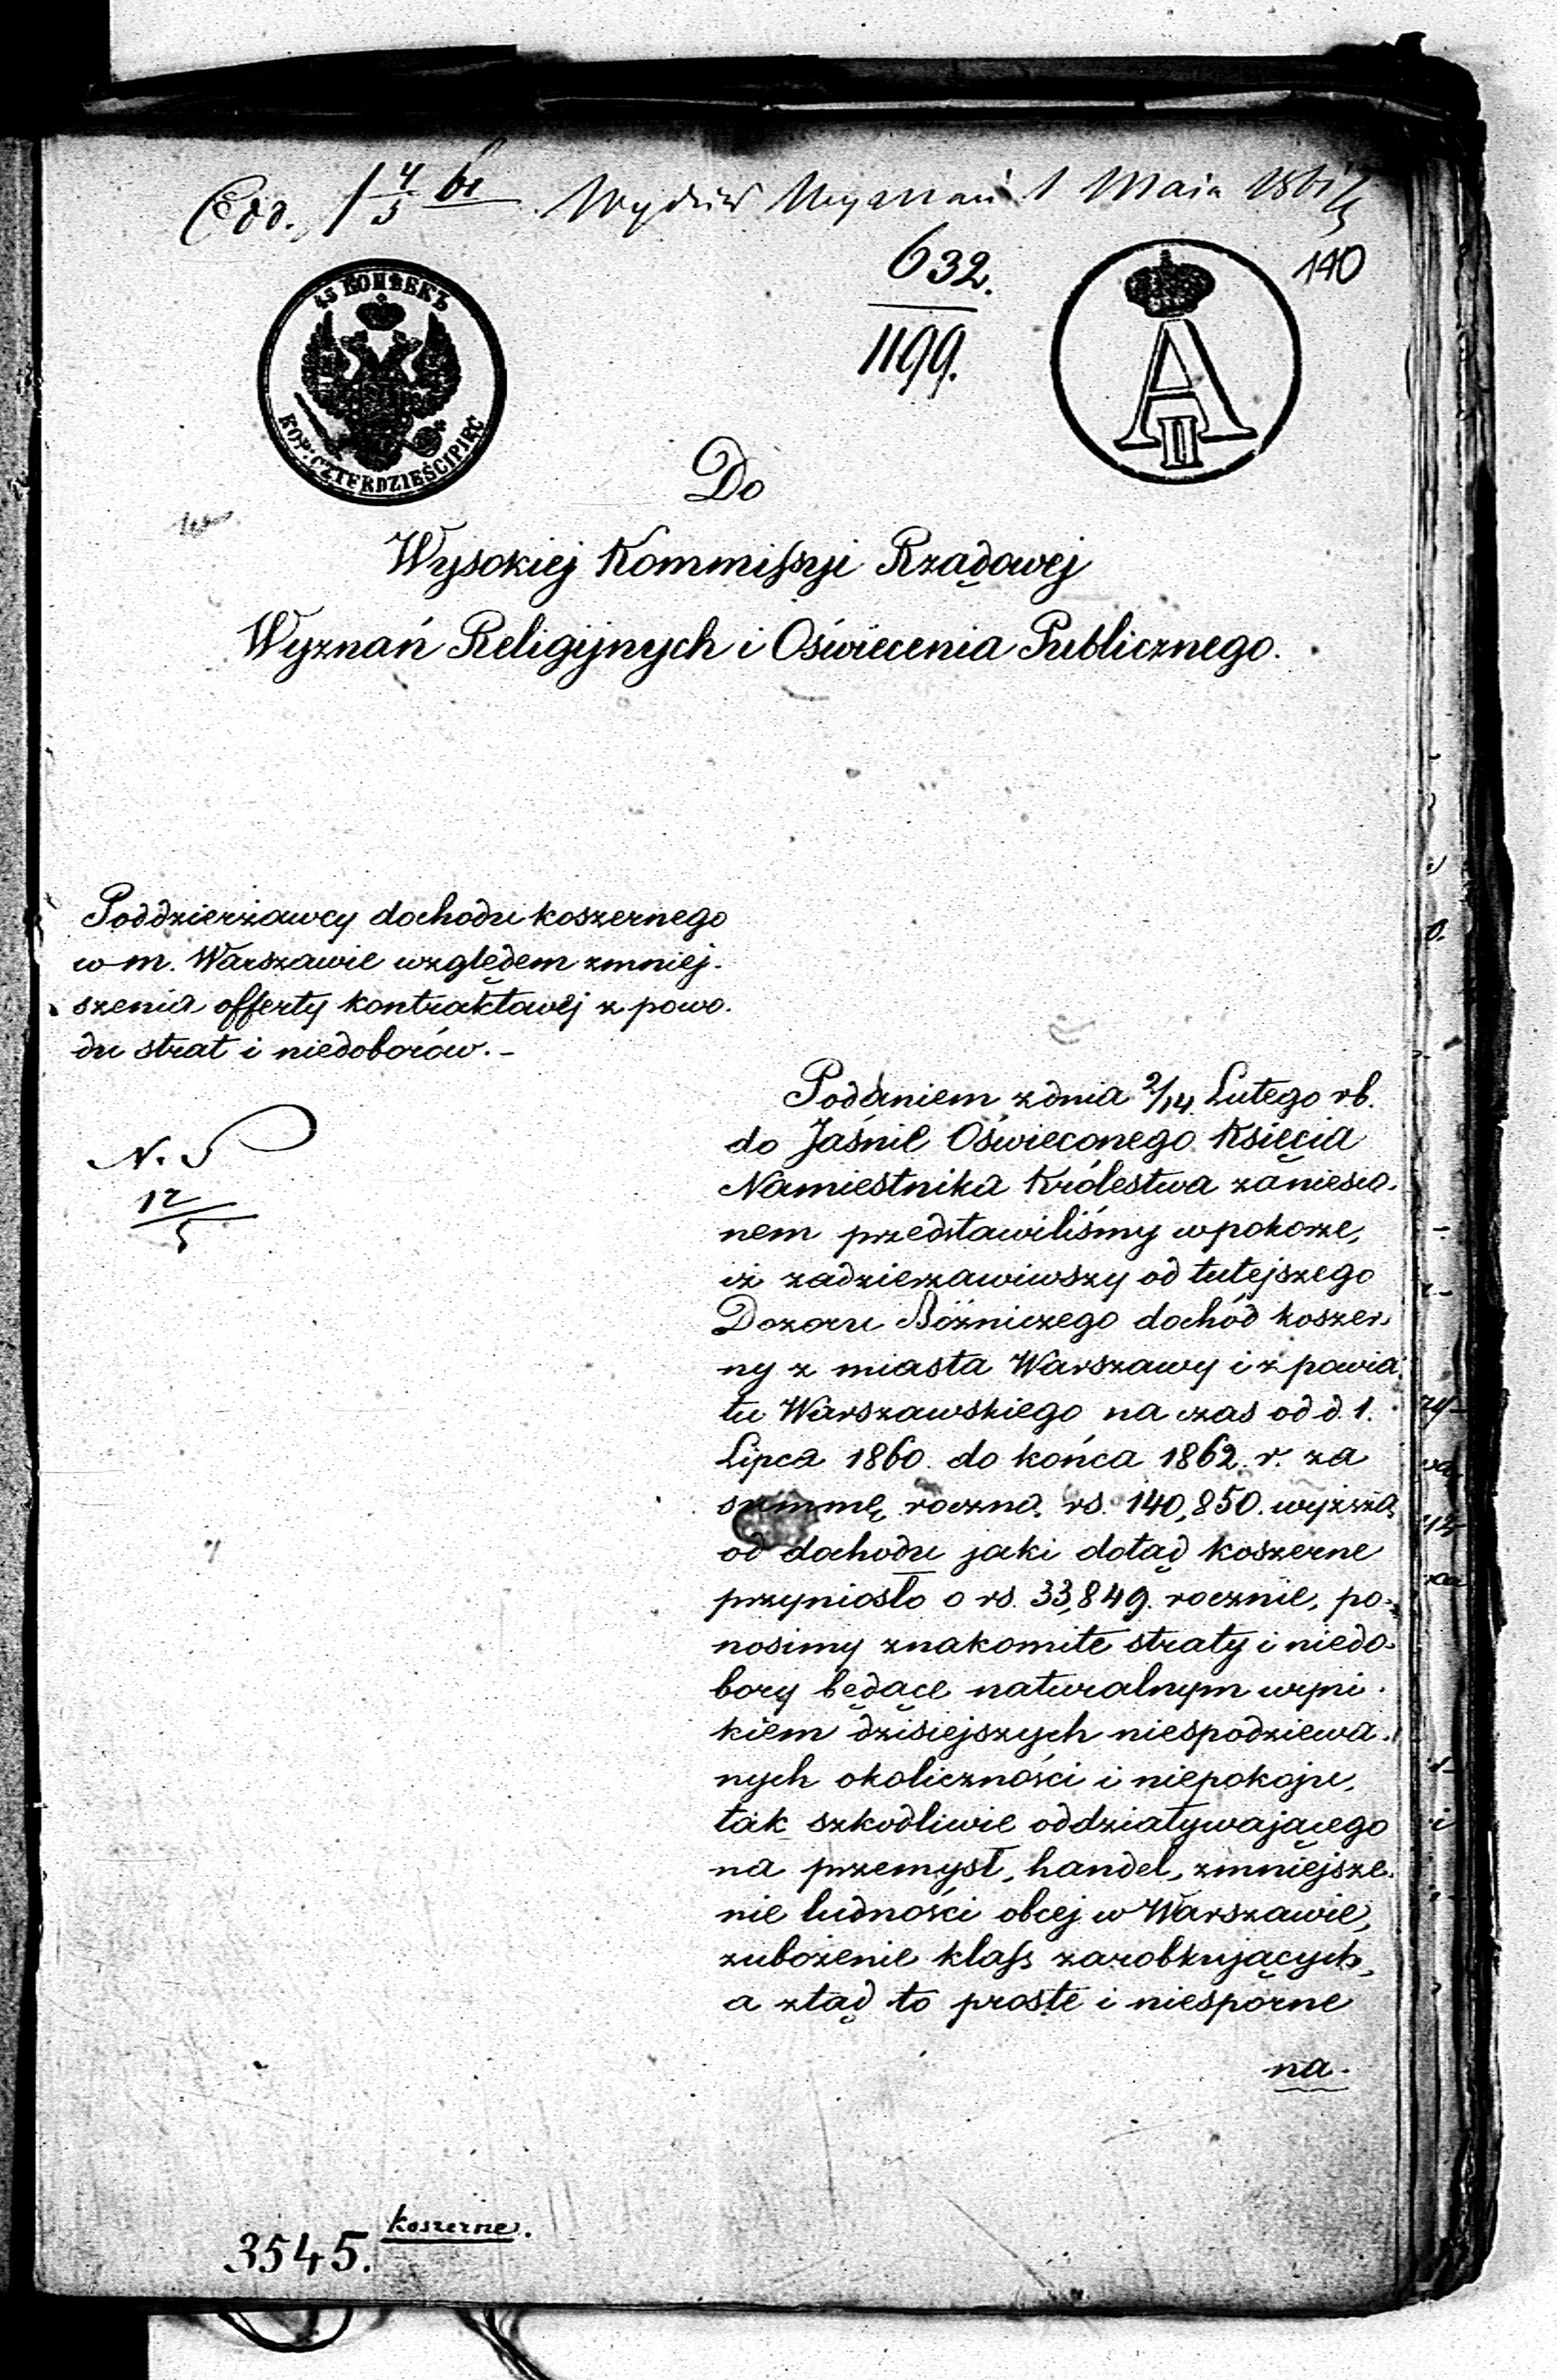 1 4/5 61 Wydział Wyznań 1 Maja 1861
632.
1199.
140
45 КОПѢЕКЪ
KOP: CZTERDZIEŚCIPIĘĆ
A
II
Do
Wysokiej Kommissyi Rządowej
Wyznań Religijnych i Oświecenia Publicznego.
Poddzierżawcy dochodu koszernego
w m. Warszawie względem zmniej-
szenia offerty kontraktowej z powo-
du strat i niedoborów.-
N. 5
12/5
Podaniem z dnia 2/14 Lutego r.b.
do Jaśnie Oświeconego Księcia
Namiestnika Królestwa zaniesio-
nem przedstawiliśmy w pokorze,
iż zadzierzawiwszy od tutejszego
Dozoru Bóżniczego dochód koszer-
ny z miasta Warszawy i z powia-
tu Warszawskiego na czas od d. 1.
Lipca 1860. do końca 1862. r. za
summę roczną rs. 140,850. wyższą
od dochodu jaki dotąd koszerne
przyniosło o rs. 33,849. rocznie, po-
nosimy znakomite straty i niedo-
bory będące naturalnym wyni-
kiem dzisiejszych niespodziewa-
nych okoliczności i niepokoju,
tak szkodliwie oddziaływającego
na przemysł, handel, zmniejsze-
nie ludności obcej w Warszawie,
zubożenie klass zarobkujących,
a ztąd to proste i niesporne
na-
koszerne.
3545.